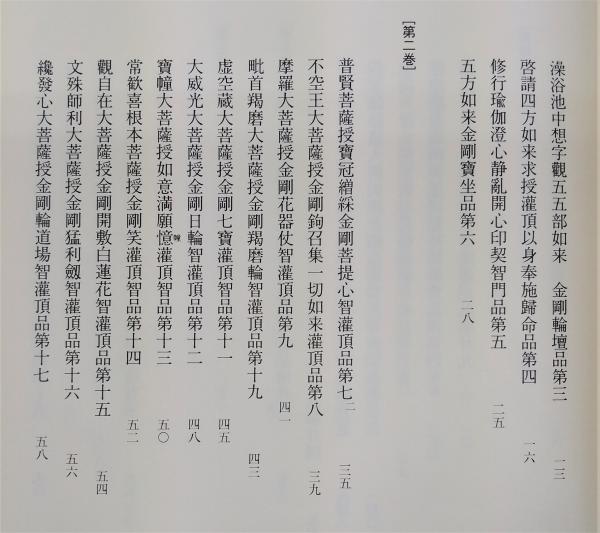 澡浴池中想字觀五五部如来　金剛輪壇品第三　一三
啓請四方如来求授灌頂以身奉施歸命品第四　一六
修行瑜伽澄心静亂開心印契智門品第五　二五
五方如来金剛寶坐品第六　二八
［第二巻］
普賢菩薩授寶冠繒綵金剛菩提心智灌頂品第七二　三五
不空王大菩薩授金剛鉤召集一切如来灌頂品第八　三九
摩羅大菩薩授金剛花器仗智灌頂品第九　四一
毗首羯磨大菩薩授金剛羯磨輪智灌頂品第十九　四三
虚空蔵大菩薩授金剛七寶灌頂智品第十一　四五
大威光大菩薩授金剛日輪智灌頂品第十二　四八
寶幢大菩薩授如意満願憶幢灌頂智品第十三　五〇
常歡喜根本菩薩授金剛笑灌頂智品第十四　五二
觀自在大菩薩授金剛開敷白蓮花智灌頂品第十五　五四
文殊師利大菩薩授金剛猛利劔智灌頂品第十六　五六
纔發心大菩薩授金剛輪道場智灌頂品第十七　五八